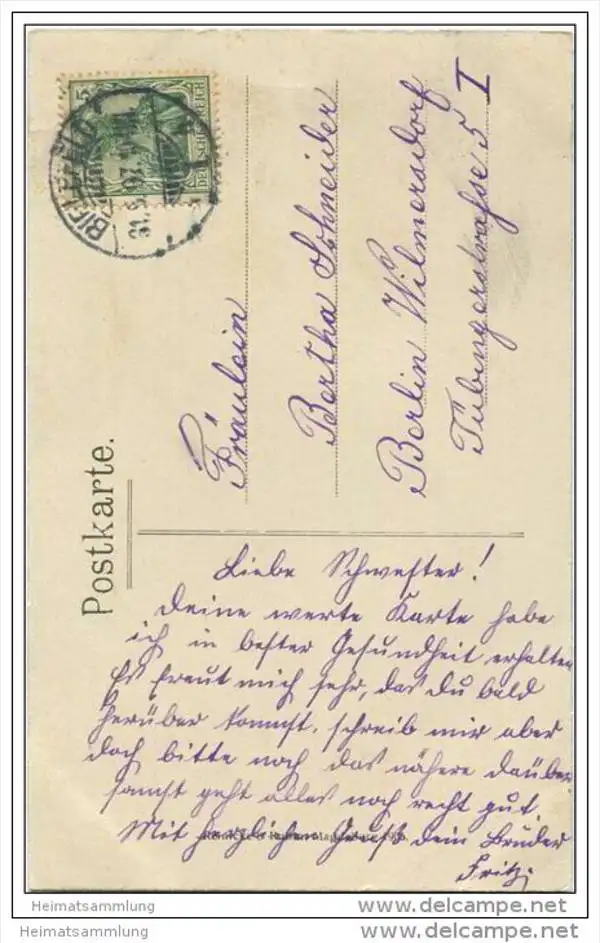 Postkarte.
BIELEFELD
DEUTSCHES REICH
5
Fräulein
Bertha Schneider
Berlin Wilmersdorf
Tübingerstrasse 5 I
Liebe Schwester!
Deine werte Karte habe
ich in bester Gesundheit erhalten
Es freut mich sehr, das du bald
herüber kommst, schreib mir aber
doch bitte noch das nähere daüber
sonst geht alles noch recht gut.
Mit herzlichen Gruß dein Brüder
Fritz.
Heimatsammlung
www.delcampe.net
Heimatsammlung
www.delcampe.net